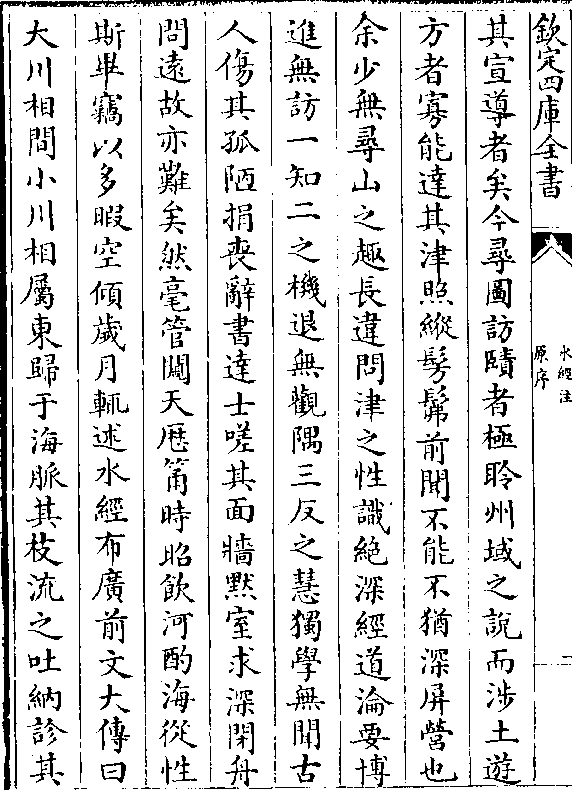 欽定四庫全書
水經注
原序
二
其宣導者矣今尋圖訪賾者極聆州域之說而涉土遊
方者寡能達其津照縱髣髴前聞不能不猶深屏營也
余少無尋山之趣長違問津之性識絶深經道淪要博
進無訪一知二之機退無觀隅三反之慧獨學無聞古
人傷其孤陋捐喪辭書達士嗟其面牆默室求深閉舟
問遠故亦難矣然毫管闚天厯筩時昭飲河酌海從性
斯畢竊以多暇空傾歲月輒述水經布廣前文大傳曰
大川相間小川相屬東歸于海脈其枝流之吐納診其